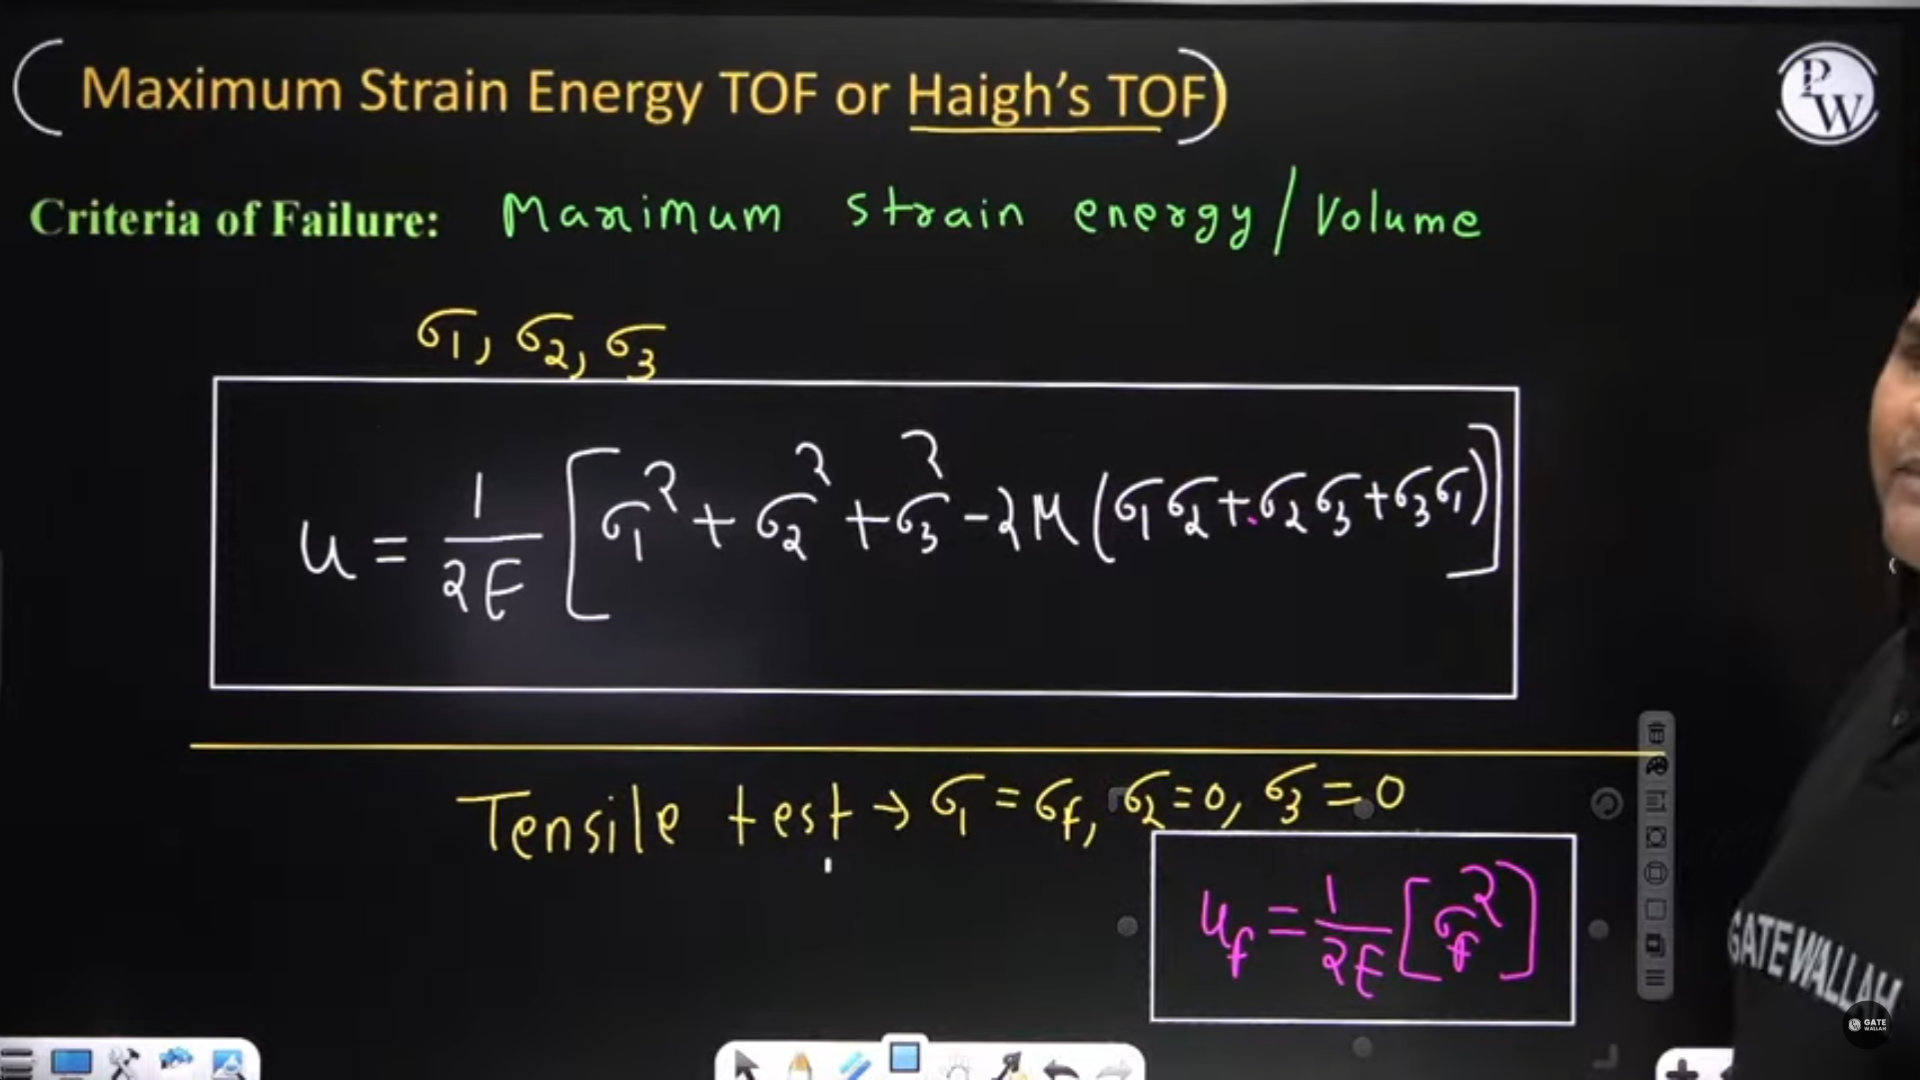 (Maximum Strain Energy TOF or Haigh's TOF)
PW
Criteria of Failure: Maximum strain energy/Volume
σ₁, σ₂, σ₃
u = 1/2E [σ₁² + σ₂² + σ₃² - 2μ(σ₁σ₂ + σ₂σ₃ + σ₃σ₁)]
Tensile test → σ₁ = σf, σ₂ = 0, σ₃ = 0
uf = 1/2E [σf²]
GATE WALLAH
GATE
WALLAH